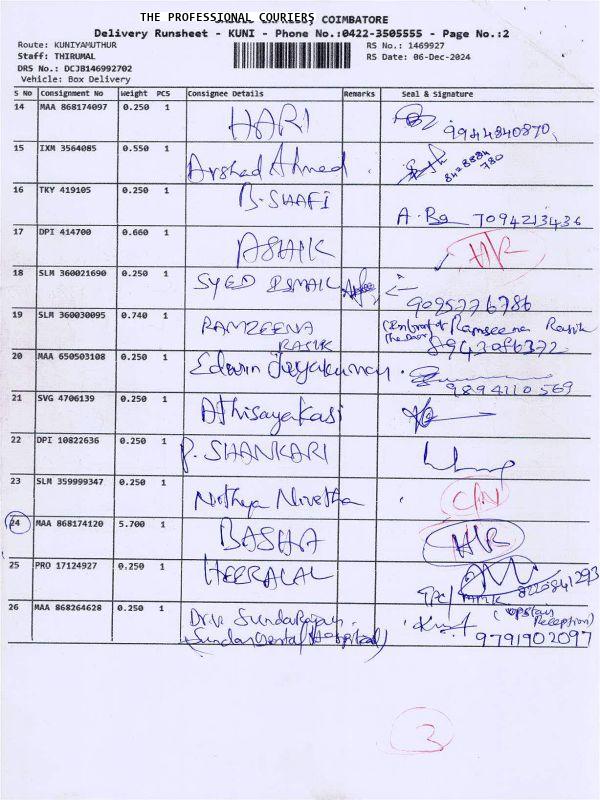 THE PROFESSIONAL COURIERS COIMBATORE
Delivery Runsheet - KUNI - Phone No.:0422-3505555 - Page No.:2
Route: KUNIYAMUTHUR RS No.: 1469927
Staff: THIRUMAL RS Date: 06-Dec-2024
DRS No.: DCJB146992702
Vehicle: Box Delivery
S No Consignment No Weight PCS Consignee Details Remarks Seal & Signature
14 MAA 868174097 0.250 1 HARI 9944840870
15 IXM 3564085 0.550 1 Arshad Ahmed 8428884780
16 TKY 419105 0.250 1 B.SHAFI A.Be 7094213436
17 DPI 414700 0.660 1 ASHIK H/R
18 SLM 360021690 0.250 1 SYED ISMAIL 9095776786
19 SLM 360030095 0.740 1 RAMZEENA RASIK (Infront of The Door) Ramseena Rasik 8943086372
20 MAA 650503108 0.250 1 Edwin Jeyakumar 9894110569
21 SVG 4706139 0.250 1 Athisayakasi
22 DPI 10822636 0.250 1 P. SHANKARI
23 SLM 359999347 0.250 1 Nithya Nivetha C/N
24 MAA 868174120 5.700 1 BASHA H/R
25 PRO 17124927 0.250 1 HEERALAL 8220841293
26 MAA 868264628 0.250 1 Dr.V. Sundarajan. (Sundar Dental Hospital) (upstair Reception) 9791902097
3